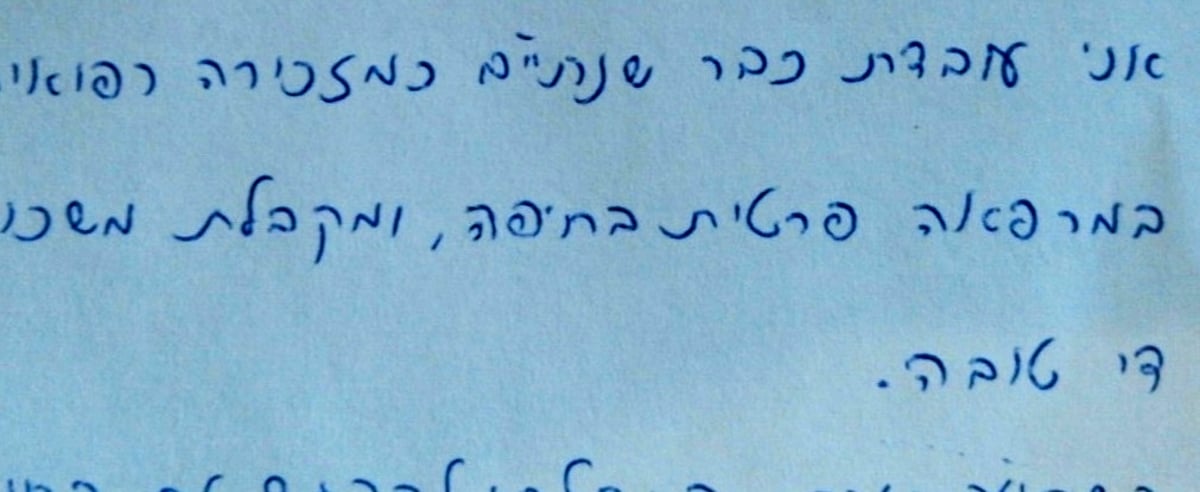 אני עובדת כבר שנתיים כמזכירה
במרפאה פרטית בחיפה, ומקבלת
די טובה.